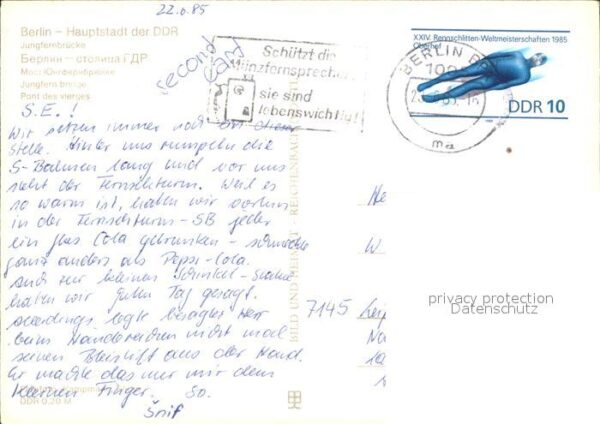 22.6.85
Berlin – Hauptstadt der DDR
Jungfernbrücke
Берлин – столица ГДР
Мост Юнгфернбрюкке
Jungfern bridge
Pont des vierges
second
card
Schützt die
Münzfernsprecher
sie sind
lebenswichtig!
XXIV. Rennschlitten-Weltmeisterschaften 1985
Oberhof
BERLIN
DDR 10
S.E.!
Wir sitzen immer noch an dieser
Stelle. Hinter uns rumpeln die
S-Bahnen lang und vor uns
steht der Fernsehturm. Weil es
so warm ist, haben wir vorhin
in der Fernsehturm-SB jeder
ein Glas Cola getrunken – schmeckte
ganz anders als Pepsi-Cola.
Auch zur kleinen Schinkel-
haben wir guten Tag gesagt.
Allerdings legte besagter Herr
beim Handereichen nicht mal
seinen Bleistift aus der Hand.
Er machte das nur mit dem
kleinen Finger. So.
Šnif
BILD UND HEIMAT REICHENBACH
7145
privacy protection
Datenschutz
DDR 0,20 M